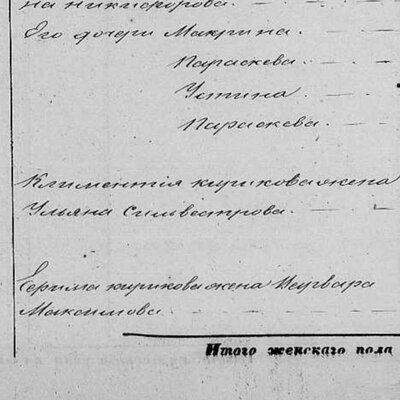 на никифорова.
Его дочери Макрина.
Параскева.
Устина
Параскева.
Климентія кирикова жена
Ульяна Силвестрова.
кирикова жена
Максимова.
Итого женскаго пола